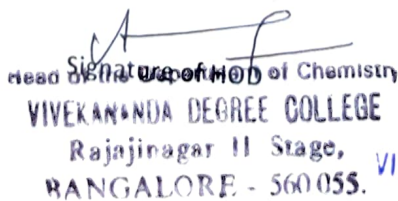 Signature of HOD
Head of the Department of Chemistry
VIVEKANANDA DEGREE COLLEGE
Rajajinagar II Stage,
BANGALORE - 560 055.
VI